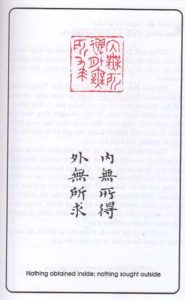 內無所得
外無所求
Nothing obtained inside; nothing sought outside